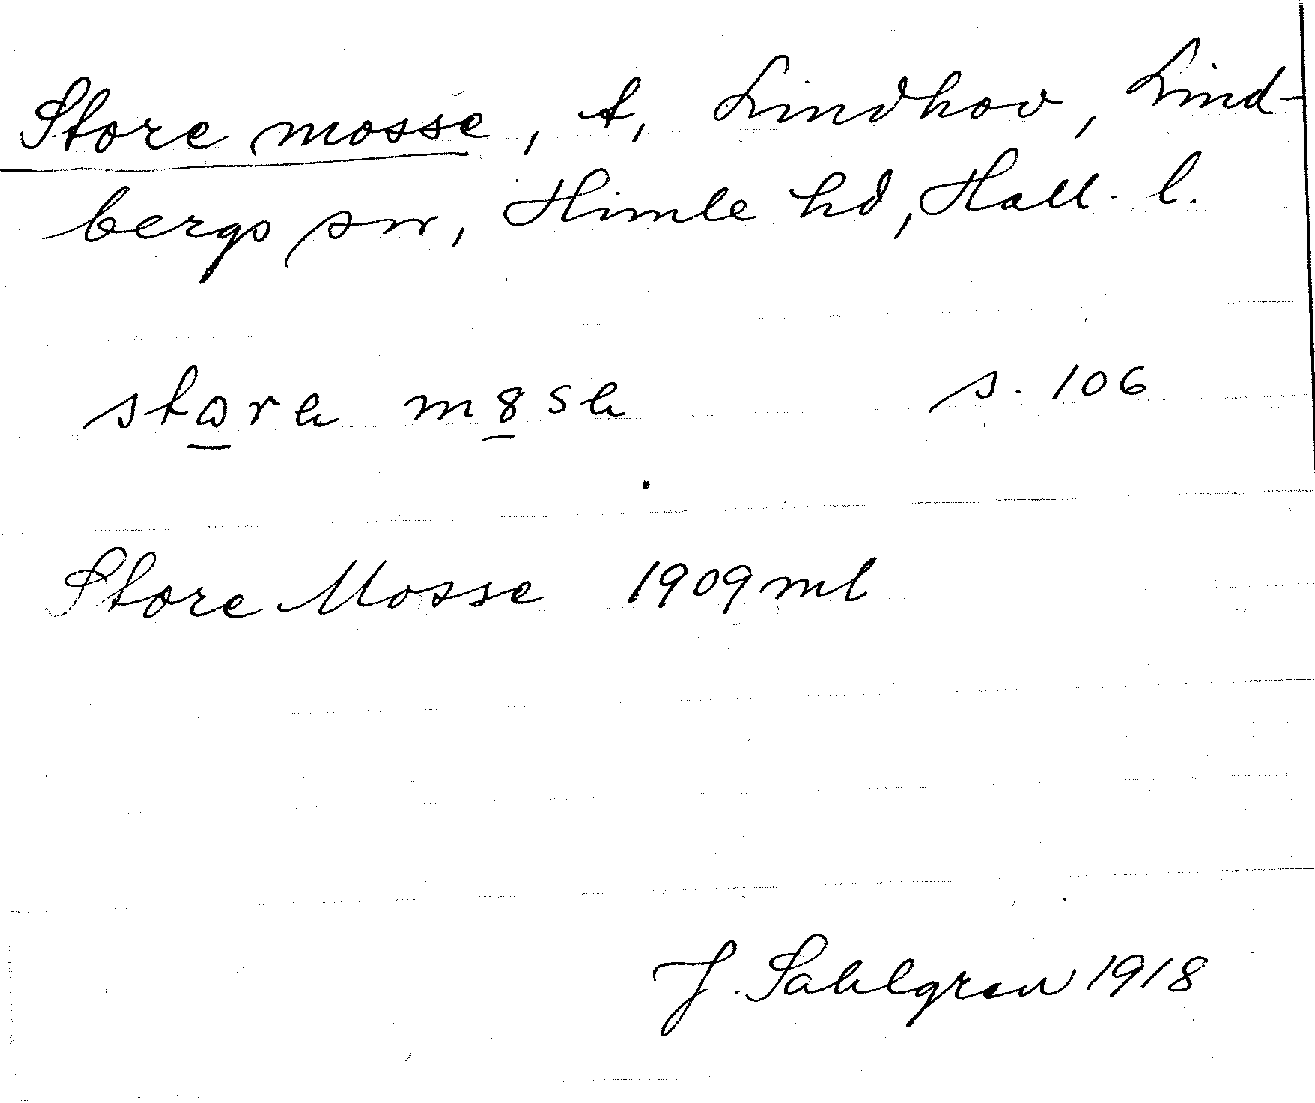 Store mosse, t, Lindhov, Lind-
bergs sn, Himle hd, Hall. l.
s. 106
Store Mosse 1909 ml
J. Sahlgren 1918